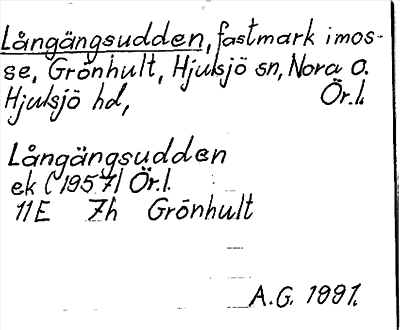 Långängsudden, fastmark i mos-
se, Grönhult, Hjulsjö sn, Nora o.
Hjulsjö hd, Ör.l.
Långängsudden
ek (1957) Ör.l.
11E 7h Grönhult
A.G. 1991.